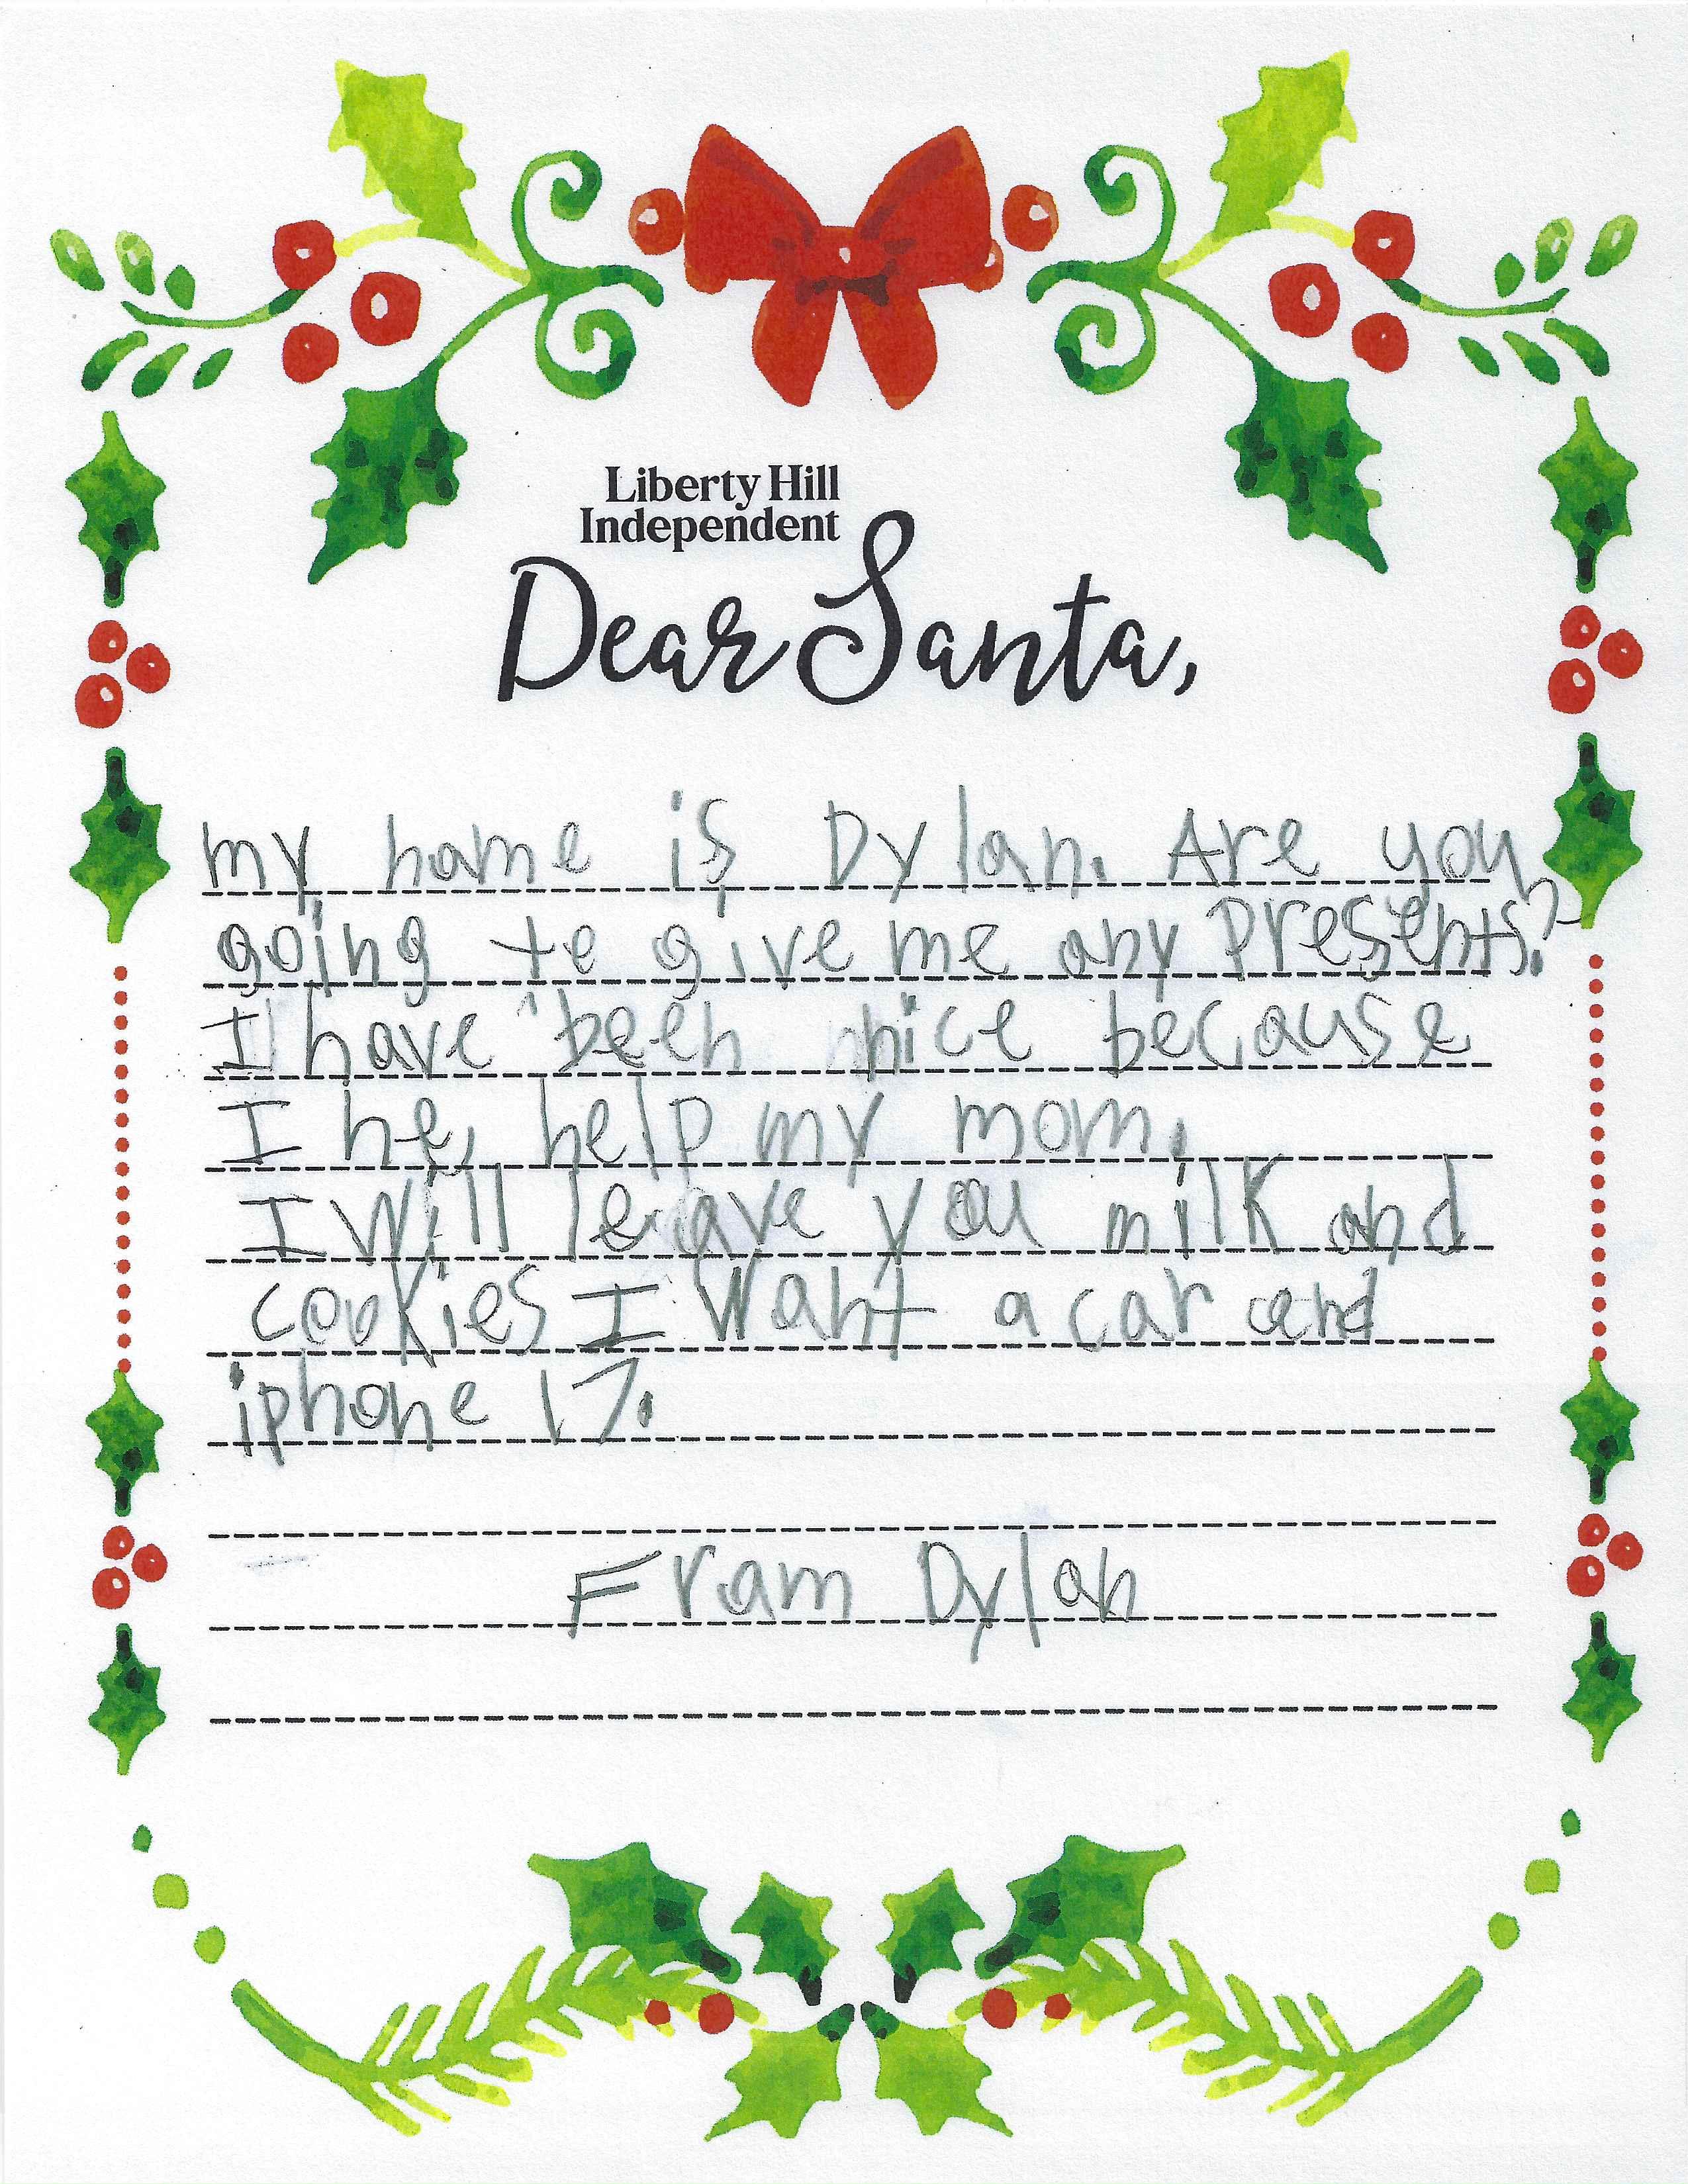 Liberty Hill
Independent
Dear Santa,
my name is Dylan. Are you
going to give me any presents?
I have been nice because
I he, help my mom.
I will leave you milk and
cookies I want a car and
iphone 17.
Fram Dylan